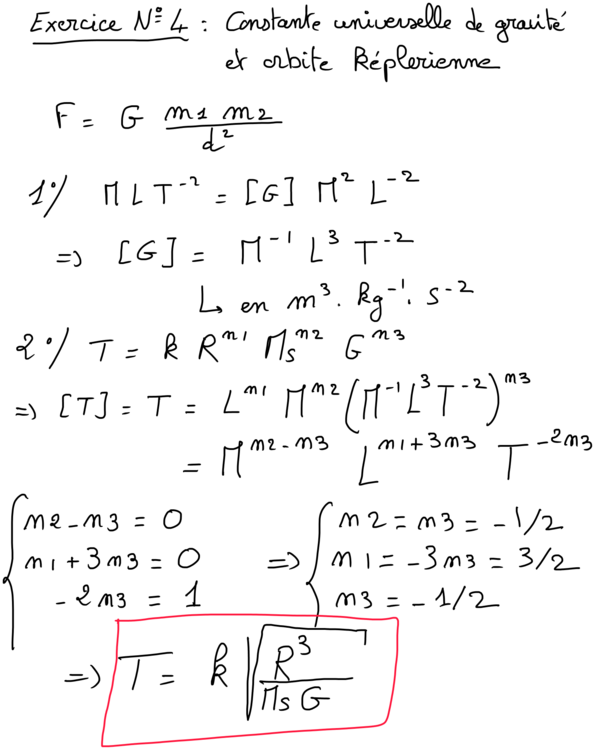 Exercice N° 4 : Constante universelle de gravité
et orbite Képlerienne
F = G m1 m2 / d²
1°/ M L T⁻² = [G] M² L⁻²
=> [G] = M⁻¹ L³ T⁻²
↳ en m³. kg⁻¹. s⁻²
2°/ T = k R^n1 Ms^n2 G^n3
=> [T] = T = L^n1 M^n2 (M⁻¹ L³ T⁻²)^n3
= M^(n2-n3) L^(n1+3n3) T^(-2n3)
{ n2 - n3 = 0 => { n2 = n3 = -1/2
n1 + 3n3 = 0 n1 = -3n3 = 3/2
-2n3 = 1 n3 = -1/2
=> T = k √(R³ / Ms G)